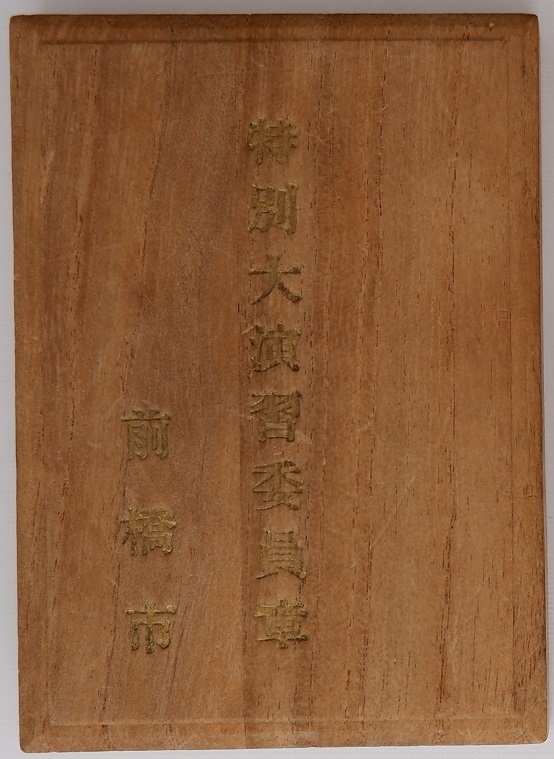 特別大演習委員章
前橋市